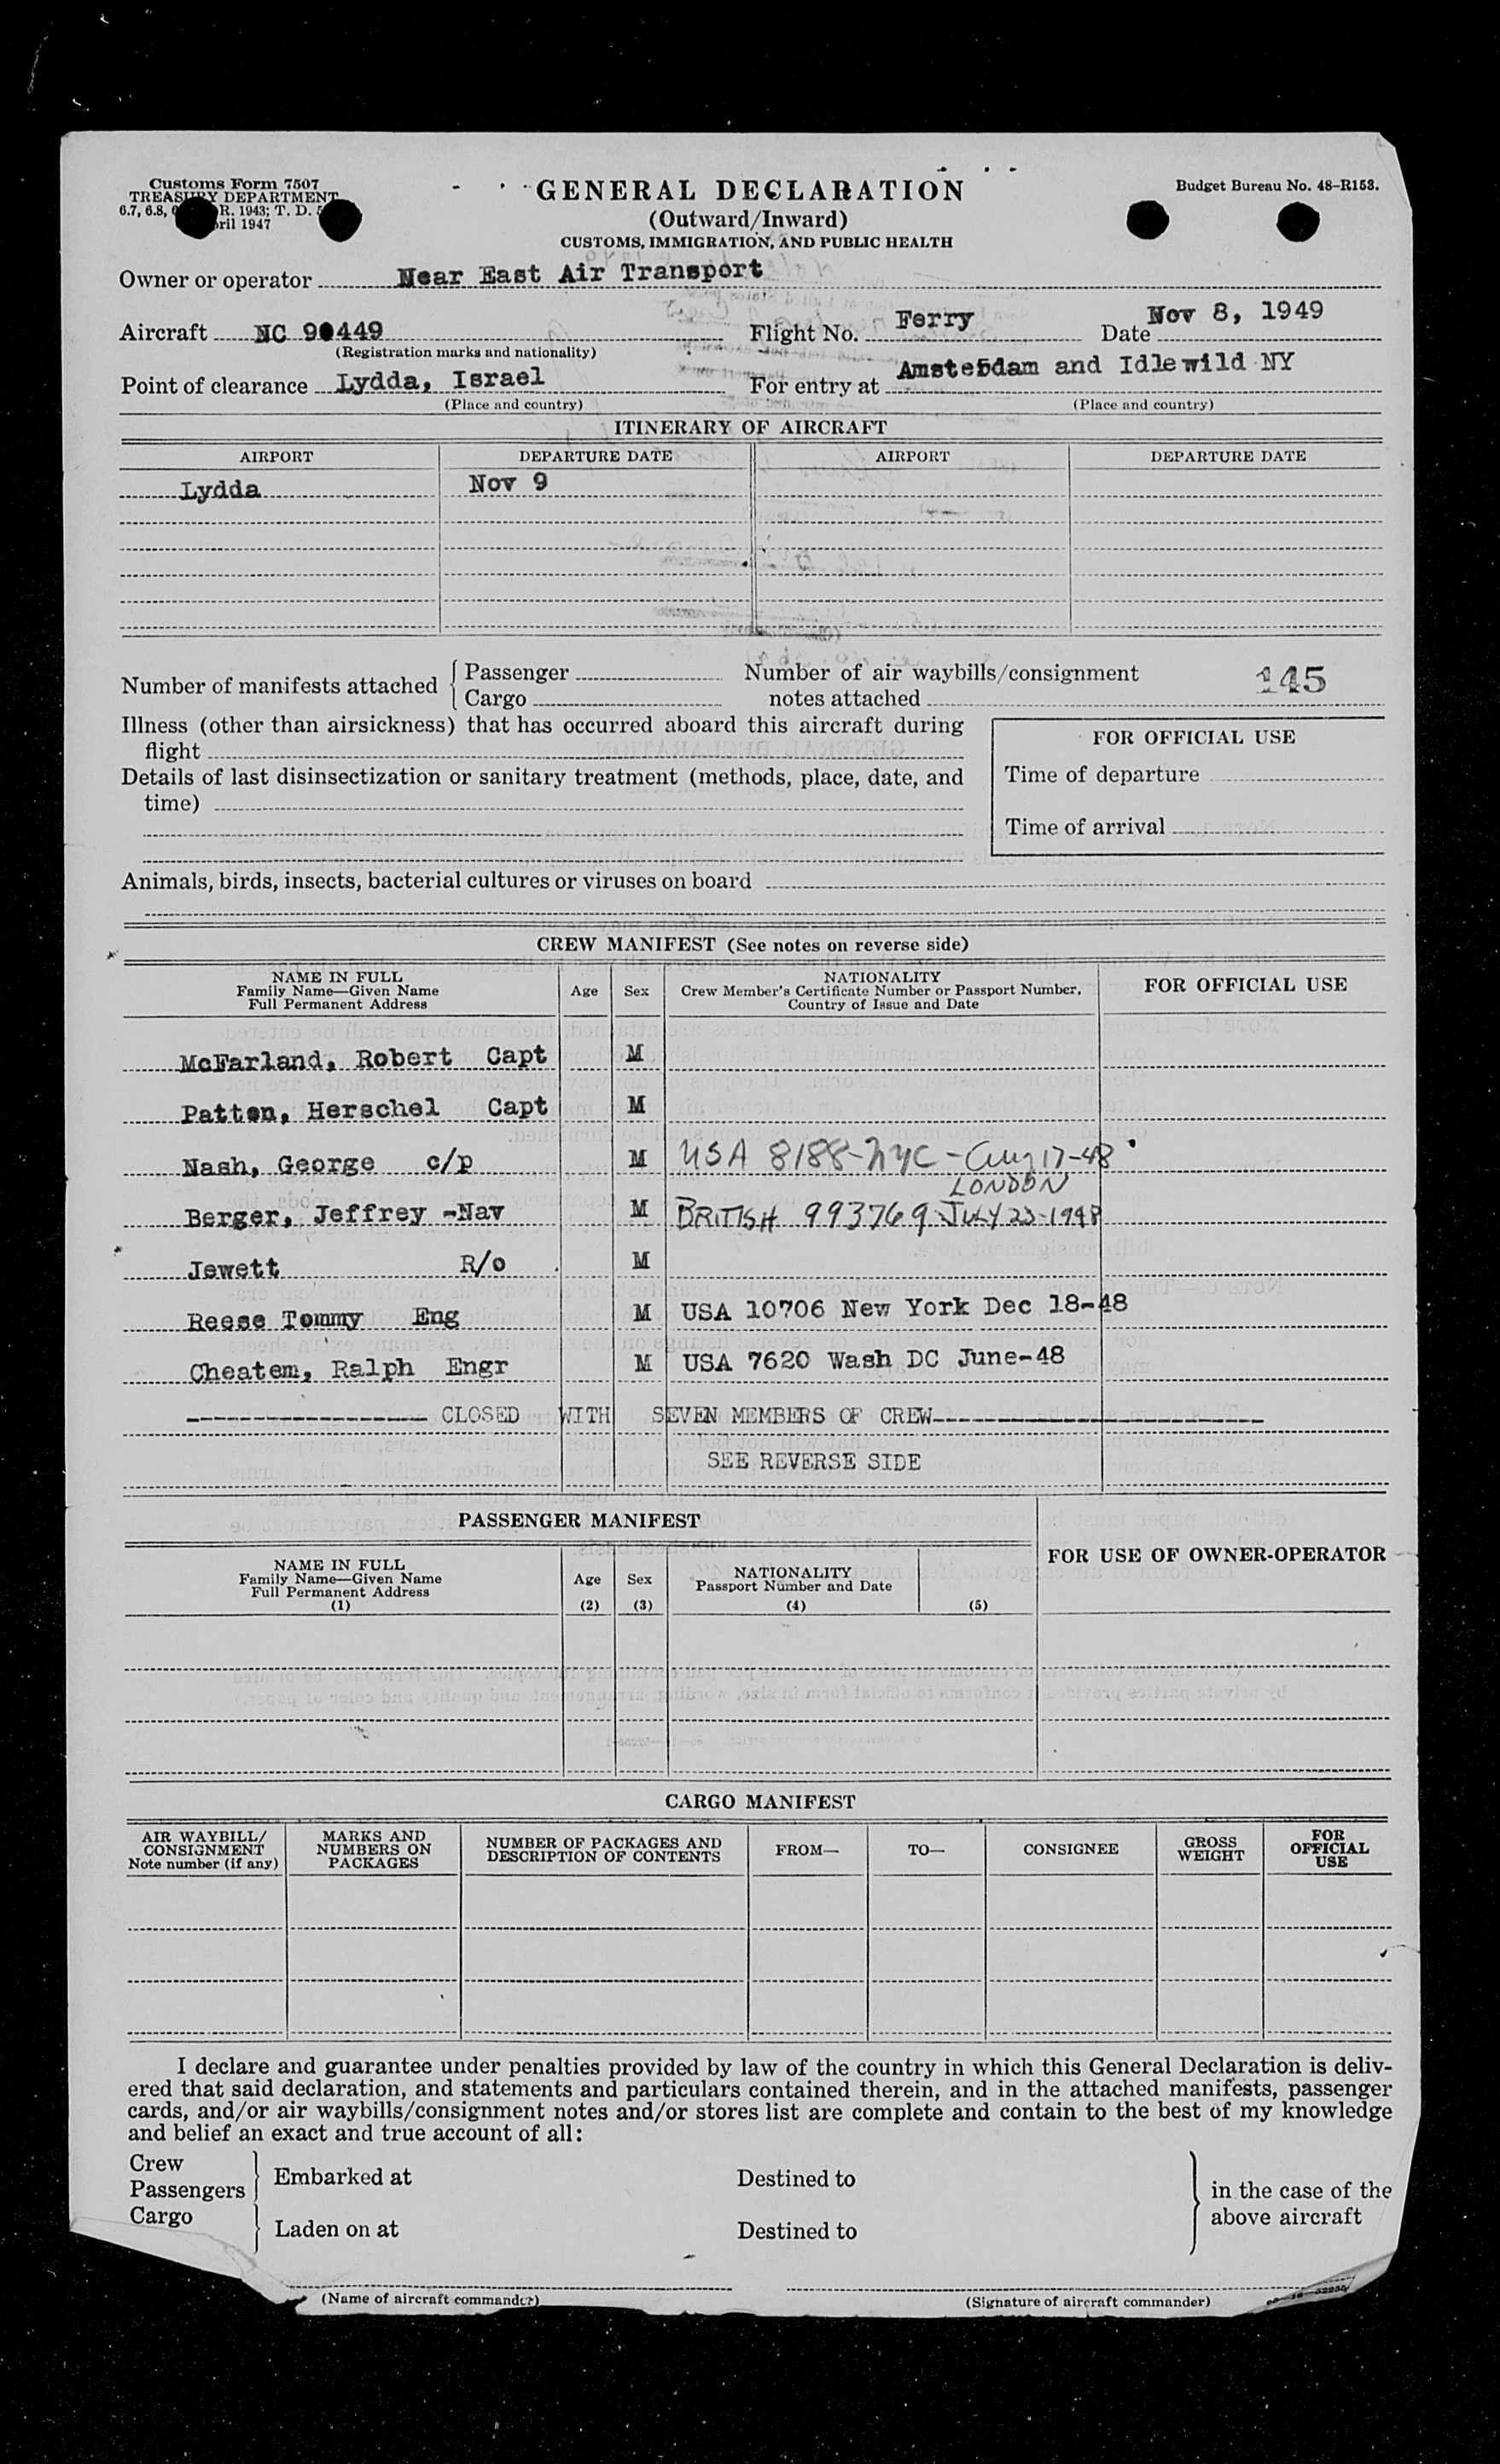 Customs Form 7507
TREASURY DEPARTMENT
6.7, 6.8, R. 1943; T. D.
ril 1947
GENERAL DECLARATION
(Outward/Inward)
CUSTOMS, IMMIGRATION, AND PUBLIC HEALTH
Budget Bureau No. 48-R153.
Owner or operator Near East Air Transport
Aircraft NC 90449 Flight No. Ferry Date Nov 8, 1949
(Registration marks and nationality)
Point of clearance Lydda, Israel For entry at Amsterdam and Idlewild NY
(Place and country) (Place and country)
ITINERARY OF AIRCRAFT
AIRPORT DEPARTURE DATE AIRPORT DEPARTURE DATE
Lydda Nov 9
Number of manifests attached { Passenger Number of air waybills/consignment 145
Cargo notes attached
Illness (other than airsickness) that has occurred aboard this aircraft during
flight
FOR OFFICIAL USE
Details of last disinsectization or sanitary treatment (methods, place, date, and
time)
Time of departure
Time of arrival
Animals, birds, insects, bacterial cultures or viruses on board
CREW MANIFEST (See notes on reverse side)
NAME IN FULL
Family Name—Given Name
Full Permanent Address
Age
Sex
NATIONALITY
Crew Member's Certificate Number or Passport Number,
Country of Issue and Date
FOR OFFICIAL USE
McFarland, Robert Capt M
Patton, Herschel Capt M
Nash, George c/p M USA 8188-NYC-Aug 17-48
LONDON
Berger, Jeffrey -Nav M BRITISH 993769-JULY 23-1948
Jewett R/o M
Reese Tommy Eng M USA 10706 New York Dec 18-48
Cheatem, Ralph Engr M USA 7620 Wash DC June-48
------------------- CLOSED WITH SEVEN MEMBERS OF CREW--------------------------
SEE REVERSE SIDE
PASSENGER MANIFEST
NAME IN FULL
Family Name—Given Name
Full Permanent Address
(1)
Age
(2)
Sex
(3)
NATIONALITY
Passport Number and Date
(4)
(5)
FOR USE OF OWNER-OPERATOR
CARGO MANIFEST
AIR WAYBILL/
CONSIGNMENT
Note number (if any)
MARKS AND
NUMBERS ON
PACKAGES
NUMBER OF PACKAGES AND
DESCRIPTION OF CONTENTS
FROM—
TO—
CONSIGNEE
GROSS
WEIGHT
FOR
OFFICIAL
USE
I declare and guarantee under penalties provided by law of the country in which this General Declaration is deliv-
ered that said declaration, and statements and particulars contained therein, and in the attached manifests, passenger
cards, and/or air waybills/consignment notes and/or stores list are complete and contain to the best of my knowledge
and belief an exact and true account of all:
Crew
Passengers } Embarked at Destined to
Cargo } Laden on at Destined to
} in the case of the
above aircraft
(Name of aircraft commander) (Signature of aircraft commander)